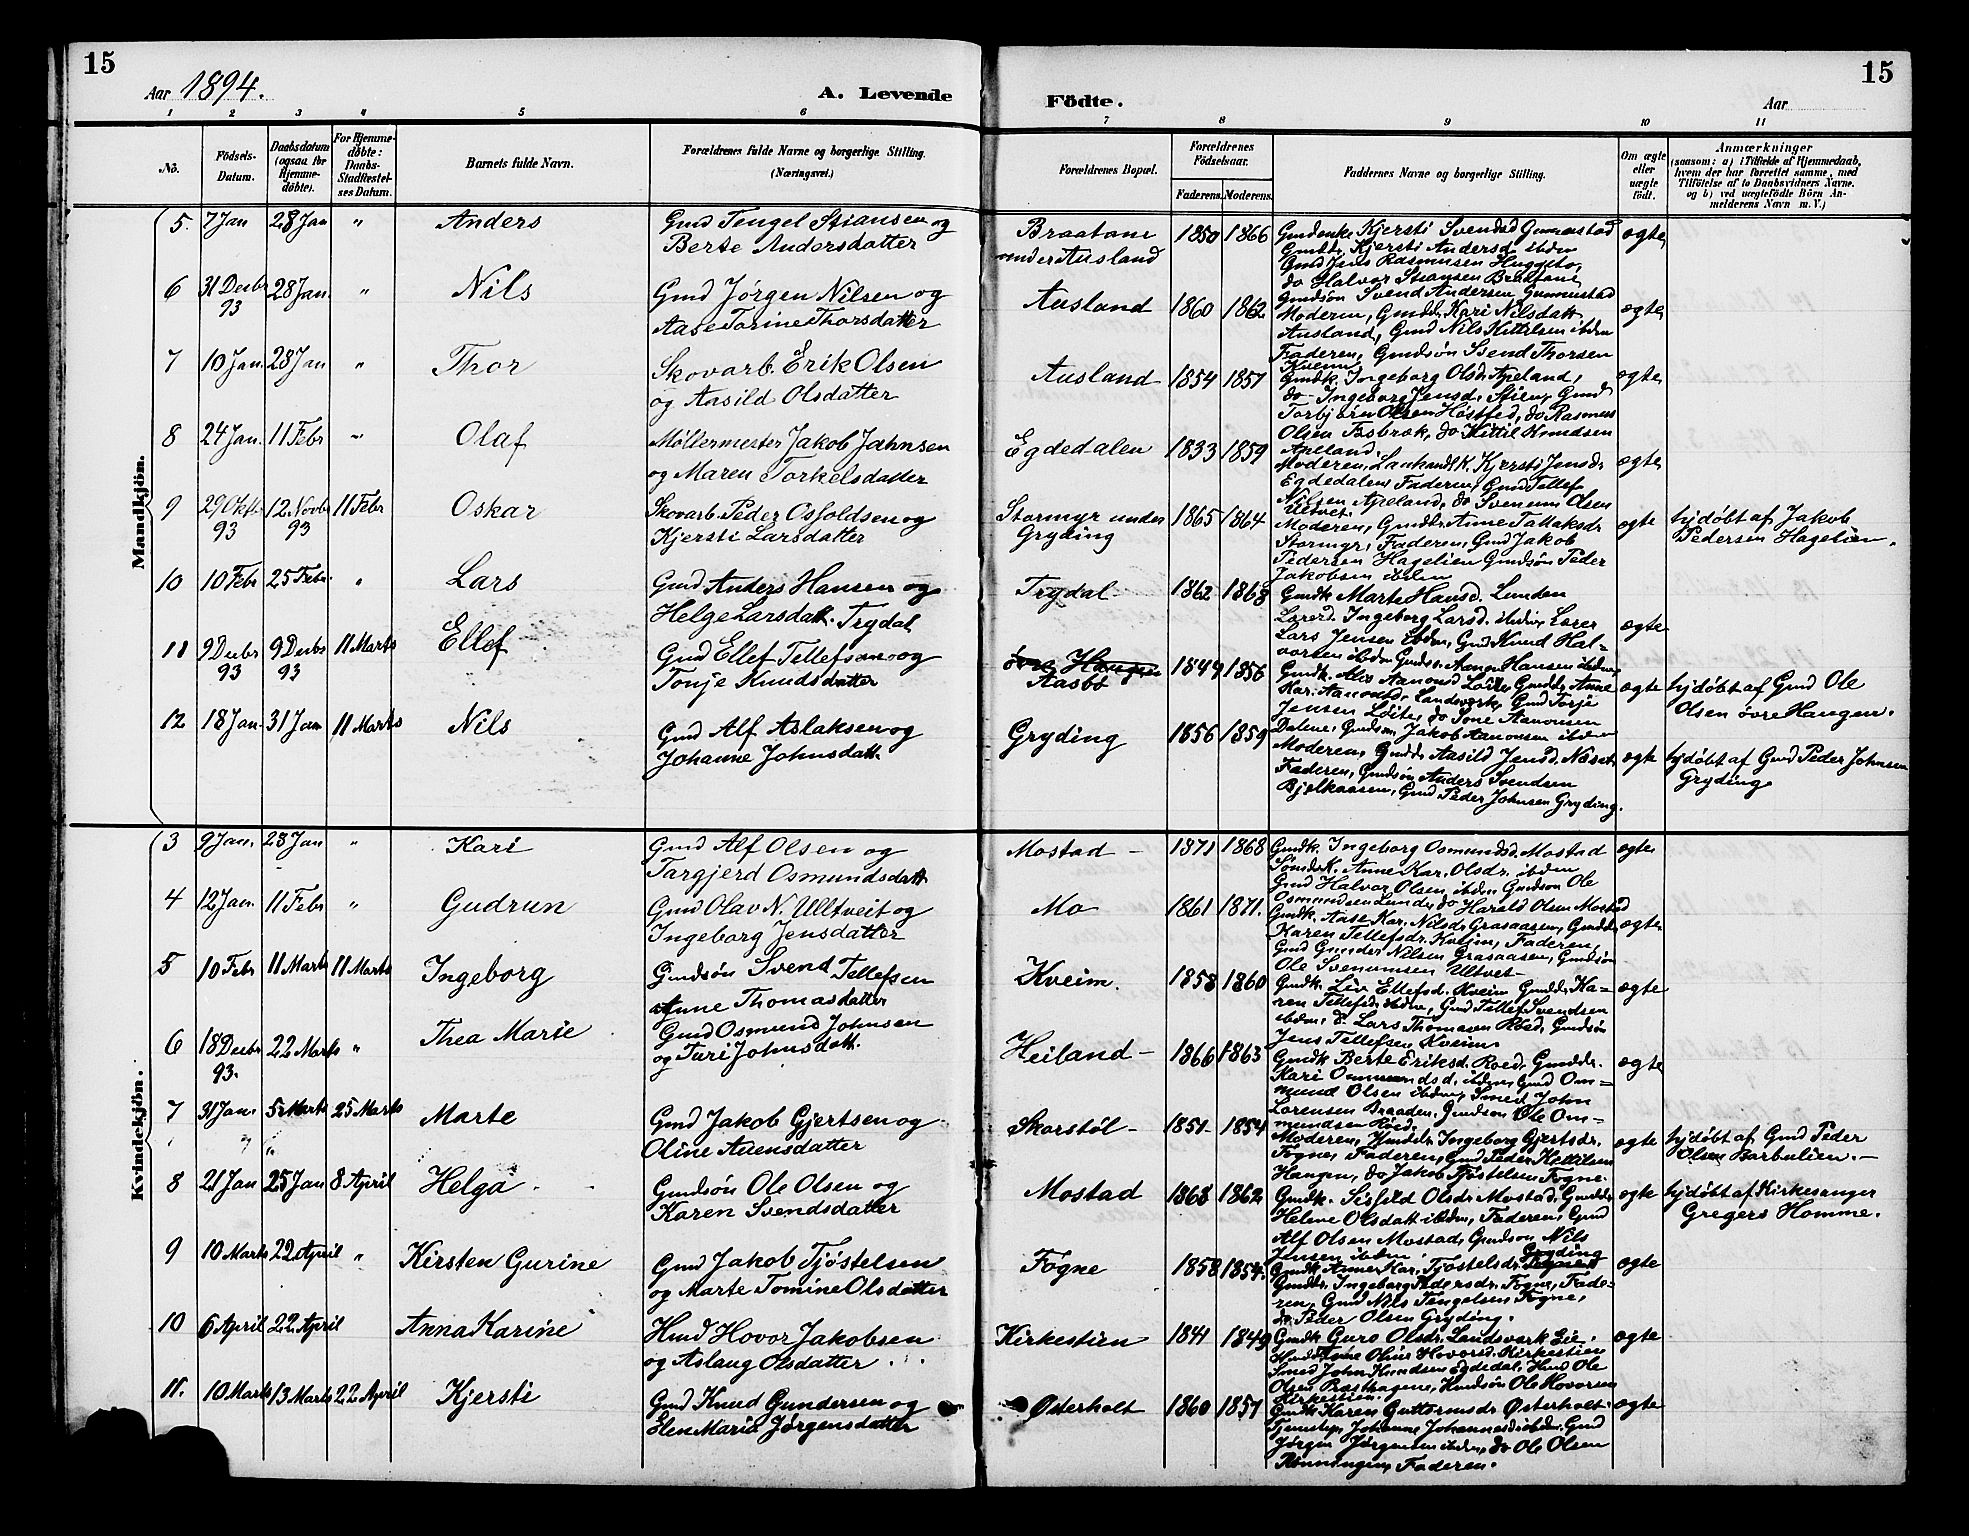 15
Aar 1894.
A. Levende
Födte.
Aar
15
1 2 3 4 5 6 7 8 9 10 11
No.
Födsels-Datum.
Daabsdatum (ogsaa for Hjemme-döbte).
For Hjemme-döbte: Daabs-Stadfæstel-ses Datum.
Barnets fulde Navn.
Forældrenes fulde Navne og borgerlige Stilling. (Næringsvei.)
Forældrenes Bopæl.
Forældrenes Födselsaar.
Faderens. Moderens.
Faddernes Navne og borgerlige Stilling.
Om ægte eller uægte födt.
Anmærkninger
(saasom: a) i Tilfælde af Hjemmedaab, hvem der har forrettet samme, med Tilföielse af to Daabsvidners Navne. og b) ved uægtefödte Börn An-melderens Navn m. V.)
Mandkjön.
5. 7 Jan 28 Jan " Anders
Gmd Tengel Stiansen og
Berte Andersdatter
Braatane
under Ausland
1850 1866
Gmdenke Kjersti Svendsd Gunnerstad
Gmddr. Kjersti Andersd. ibden
Gmd Jens Rasmusen
do Halvor Stiansen Braatane
Gmdsøn Svend Andersen Gunnerstad
ægte
6 31 Decbr 93 28 Jan. " Nils
Gmd Jörgen Nilsen og
Aase Torine Thorsdatter
Ausland 1860 1862
Moderen, Gmddr. Kari Nilsdatt
Ausland, Gmd Nils Kittelsen ibden
Faderen, Gmdsøn Svend Thorsen
Kveim
ægte
7 10 Jan. 28 Jan " Thor
Skovarb. Erik Olsen
og Aasild Olsdatter
Ausland 1854 1857
Gmdk. Ingeborg Olsd. Apeland,
do Ingeborg Jensd. Stien, Gmd
Torbjörn Olsen Høstfed, do Rasmus
Olsen Tosbræk, do Kittil Knudsen
Apeland.
ægte
8 24 Jan. 11 Febr " Olaf
Møllermester Jakob Jahnsen
og Maren Torkelsdatter
Egdedalen 1833 1859
Moderen, Kjersti Jensdr.
Egdedalen, Faderen, Gmd Tellef
Nilsen Apeland, do Svennum Olsen
Ultvet.
ægte
9 29 Oktr. 93 12 Novbr 93 11 Febr Oskar
Skovarb. Peder Osfoldsen og
Kjersti Larsdatter
Stormyr under
Gryding
1865 1864
Moderen, Gmddr. Anne Tallaksdr
Stormyr, Faderen, Gmd Jakob
Pedersen Hagelien Gmdsøn Peder
Jakobsen ibden
ægte
hjdøbt af Jakob
Pedersen Hagelien.
10 10 Febr 25 Febr. " Lars
Gmd Anders Hansen og
Helge Larsdatt. Trydal
Trydal 1862 1868
Gmdk Marte Hansd. Lunden
Lærerd. Ingeborg Larsd. ibden, Lærer
Lars Jensen ibden, Gmd Knud Hal-
vorsen ibden Gmdsøn Aanon Hansen ibden,
ægte
11 9 Decbr 93 9 Decbr 93 11 Marts Ellef
Gmd Ellef Tellefsen og
Tonje Knudsdatter
øvre Haugen
Aasbø
1849 1856
Gmdk. Aanonsd Løite, Gmddr. Anne
Kar. Aanonsd. Landsverk, Gmd Torje
Jensen Løite, do Tone Aanonsen
Dalene, Gmdsøn Jakob Aanonsen ibden
ægte
hjdøbt af Gmd Ole
Olsen övre Haugen.
12 18 Jan. 31 Jan 11 Marts Nils
Gmd Alf Aslaksen og
Johanne Johnsdatt.
Gryding 1856 1859
Moderen, Gmddr. Aasild Jensd. Næset,
Faderen, Gmdsøn Anders Svendsen
Bjelkaasen, Gmd Peder Johnsen Gryding.
ægte
hjdøbt af Gmd Peder Johnsen
Gryding
Kvindekjön.
3 9 Jan. 28 Jan " Kari
Gmd Alf Olsen og
Targjerd Osmundsdatt
Mostad 1871 1868
Gmdk. Ingeborg Osmundsd. Mostad
Anne Kar. Olsdr. ibden
Gmd Halvor Olsen ibden Gmdsøn Ole
Osmundsen Lunde, do Harald Olsen Mostad
ægte
4 12 Jan. 11 Febr " Gudrun
Gmd Olav N. Ulltveit og
Ingeborg Jensdatter
Mo 1861 1871.
Gmdk. Aase Kar. Nilsdr. Grasaasen, Gmddr
Karen Tellefsdr. Kveim, Faderen,
Gmd Gunder Nilsen Grasaasen, Gmdsøn
Ole Svenumsen Ultvet
ægte
5 10 Febr 11 Marts 11 Marts Ingeborg
Gmdsøn Svend Tellefsen
Anne Thomasdatter
Kveim. 1858 1860
Gmdk. Liv Ellefsd. Kveim Gmddr. Ka-
ren Tellefsdr. ibden, Gmd Tellef Svendsen
ibden, do. Lars Thomasen Roed, Gmdsøn
Jens Tellefsen Kveim
ægte
6 18 Decbr 93. 22 Marts " Thea Marie
Gmd Osmund Johnsen
og Turi Johnsdatt.
Heiland 1866 1863
Gmdk Berte Eriksd. Roed, Gmddr.
Kari Ommundsd. ibden, Gmd Om-
mund Olsen ibden, Smed John
Lorensen Braaden, Gmdsøn Ole Om-
mundsen Roed.
ægte
7 31 Jan. 5 Marts 25 Marts Marte
Gmd Jakob Gjertsen og
Oline Auensdatter
Skorstöl 1851 1854
Moderen, Ingeborg Gjertsdr.
Fogne, Faderen, Gmd Peder Kittilsen
Haugen, do Jakob Tjöstelsen Fogne.
ægte
hjdøbt af Gmd Peder
Olsen Barbulien.
8 21 Jan 25 Jan 8 April Helga
Gmdsön Ole Olsen og
Karen Svendsdatter
Mostad 1868 1862
Gmdk. Sigfrid Olsdr. Mostad, Gmddr.
Helene Olsdatt ibden, Faderen, Gmd
Alf Olsen Mostad, Gmdsøn Nils
Jensen ibden.
ægte
hjdøbt af Kirkesanger
Gregers Homme.
9 10 Marts 22 April " Kirsten Gurine
Gmd Jakob Tjöstelsen
og Marte Tomine Olsdatter
Fogne 1858 1854.
Gryding
Gmdk. Anne Kar. Tjöstelsdr.
Gmddr. Ingeborg Pedersdr. Fogne, Fade-
ren, Gmd Nils Tengelsen Fogne,
do Peder Olsen Gryding.
ægte
10 6 April 22 April Anna Karine
Hmd Hovor Jakobsen
og Aslaug Olsdatter
Kirkestien 1841 1849
Gmdk Guro Olsdr. Landsverk Eie.
Anne Oline Hovorsd. Kirkestien
Smed John Knudsen Egdedal, Hmd Ole
Olsen Præsthagene, Hmdsøn Ole Hovorsen
Kirkestien.
ægte
11. 10 Marts 13 Marts 22 April Kjersti
Gmd Knud Gundersen og
Elen Maria Jørgensdatter
Østerholt 1860 1857
Gmdk Karen Guttormsdr. Østerholt.
Tjenstep. Johanne Johannesd. ibden. Gmd
Jørgen Jørgensen ibden, do Ole Olsen
Rønningen, Faderen.
ægte